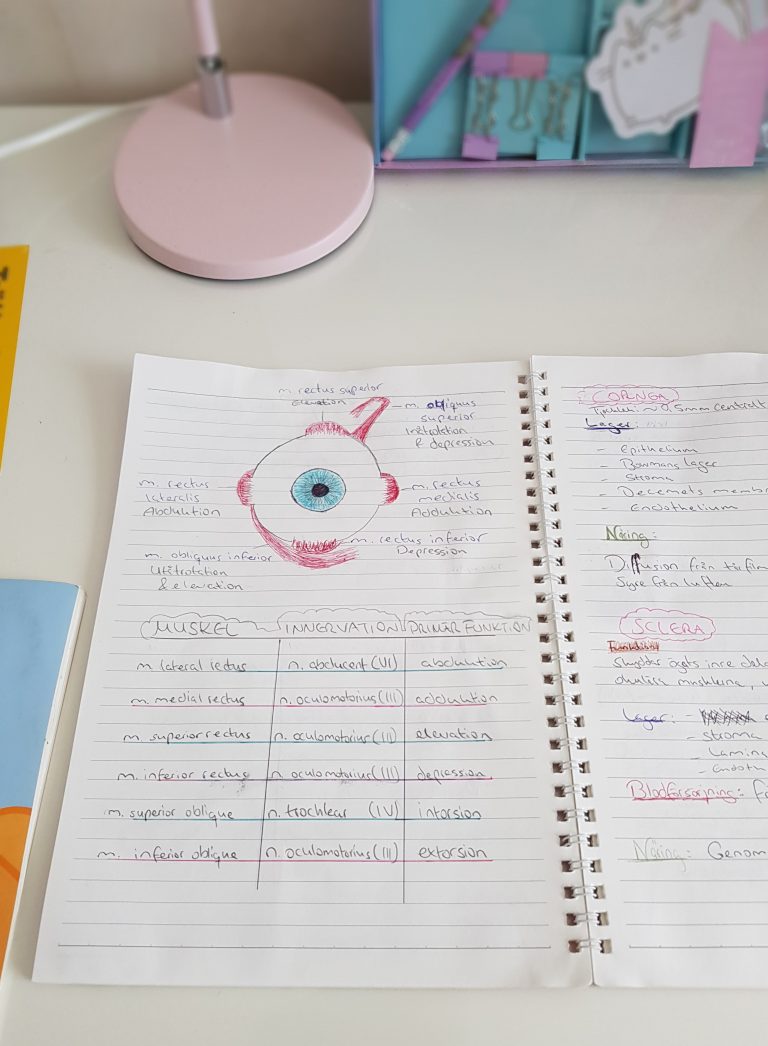 m. rectus superior
Elevation
m. obliquus
superior
Inåtrotation
& depression
m. rectus
lateralis
Abduktion
m. rectus
medialis
Adduktion
m. rectus inferior
Depression
m. obliquus inferior
Utåtrotation
& elevation
MUSKEL INNERVATION PRIMÄR FUNKTION
m. lateral rectus n. abducent (VI) abduktion
m. medial rectus n. oculomotorius (III) adduktion
m. superior rectus n. oculomotorius (III) elevation
m. inferior rectus n. oculomotorius (III) depression
m. superior oblique n. trochlear (IV) intorsion
m. inferior oblique n. oculomotorius (III) extorsion
CORNEA
~0,5mm centralt
Lager:
- Epithelium
- Bowmans lager
- Stroma
- Decemets memb
- Endothelium
Näring:
Diffusion från tårfilm
Syre från luften
SCLERA
Skyddar ögats inre
Lager:
- Stroma
- Lamina
- Endoth
Blodförsörjning:
Näring: Genom